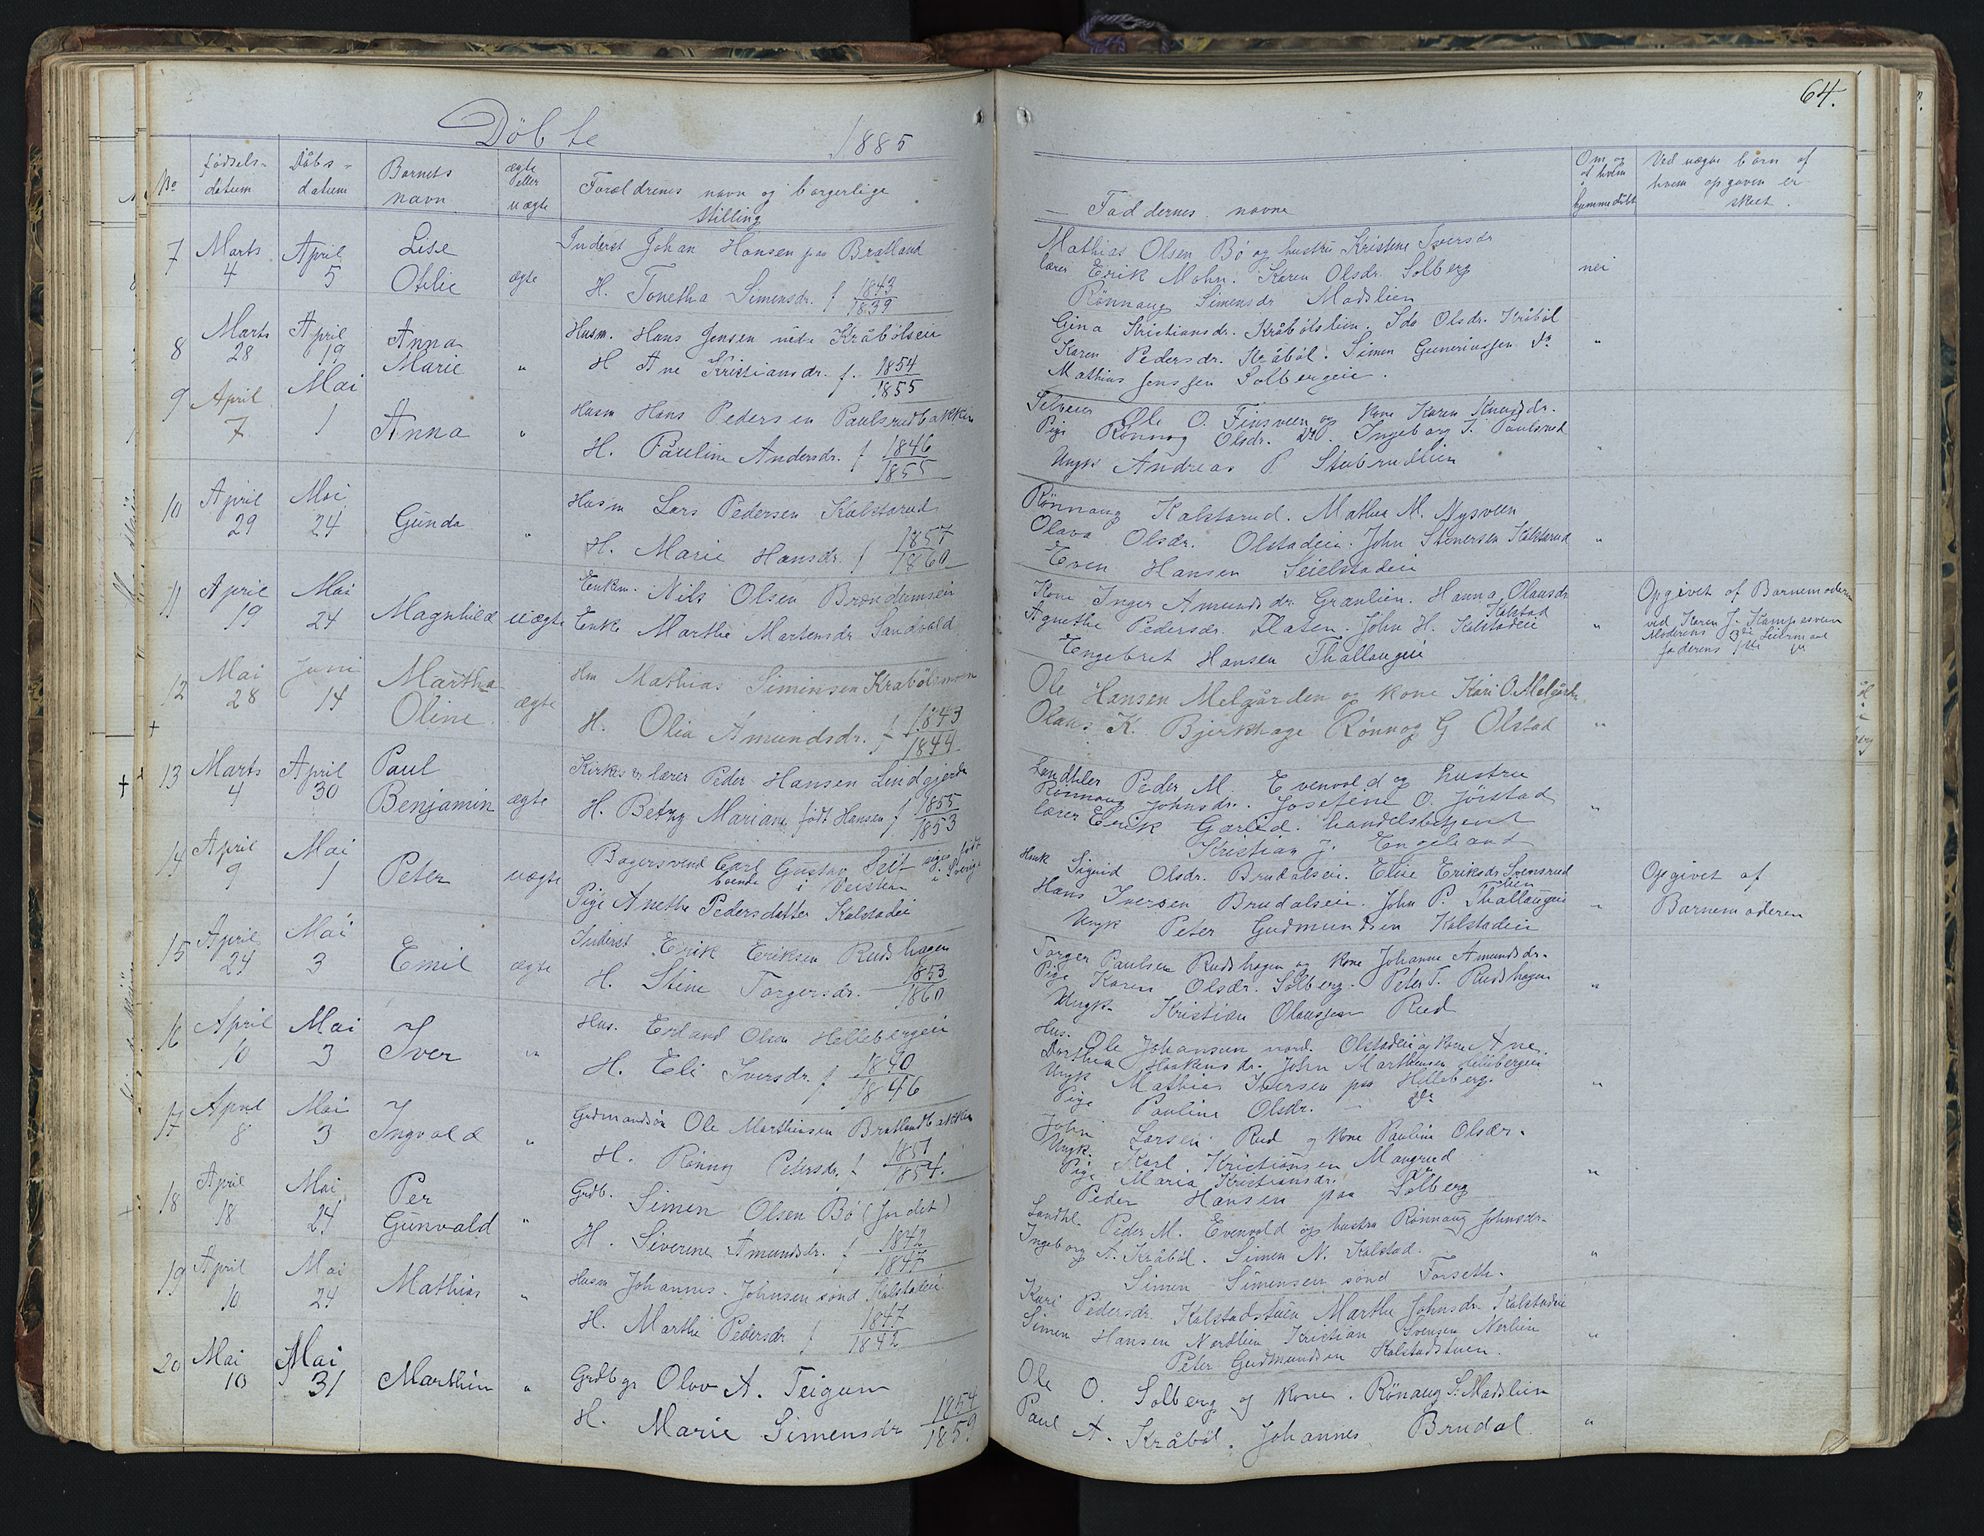 Döbte 1885
64.
No
födsels-
datum
Dåbs-
datum
Barnets
navn
ægte
eller
uægte
Forældrenes navn og borgerlige
Stilling
Faddernes navne
Om og
af hvem
hjemmedöbt
Ved uægte börn af
hvem opgaven er
skeet.
7 Marts 4 April 5 Lise
Otilie ægte
Inderst Johan Hansen paa Bratland
H. Tonetha Simensdr. f 1843
1839
Mathias Olsen Bö og hustru Kristine Iversdr
lærer Erik Mohn. Karen Olsdr. Solberg nei
Rönnaug Simensdr Madslien
8 Marts 28 April 19 Anna
Marie "
Husm. Hans Jensen nedr Kråbölseie
H Ane Kristiansdr. f. 1854
1855
Gina Kristiansdr. Kråbölslien. Ida Olsdr. Kråböl
Karen Pedersdr. Kråböl. Simen Guneriussen do "
Mathias Jenssen Solbergeie.
9 April 7 Mai 1 Anna "
Husm Hans Pedersen Paulsrudbakken
H. Pauline Andersdr. f 1846
1855
Selveier Ole O. Finsveen og kone Karen Knudsdr.
Pige Rönnog Olsdr. do. Ingeborg T. Paulsrud "
Ungk Andreas P Stubrudlien
10 April 29 Mai 24 Gunda "
Husm Lars Pedersen Kalstarud
H. Marie Hansdr. f 1857
1860
Rönnaug Kalstarud. Mathea M. Nysveen
Olava Olsdr. Olstadeie. John Stenersen Kalstarud "
Even Hansen Seielstadeie
11 April 19 Mai 24 Magnhild uægte
Enkem. Nils Olsen Brændumseie
Enke Marthe Martensdr Sandvold
Kone Inger Amundsdr. Granlien. Hanna Olausdr
Kalstad
Agnethe Pedersdr. Flaten. John H. Kalstadeie "
Engebret Hansen Thallaugeie
Opgivet af Barnemoderen
ved Karen J. Kampesveen
Moderens 3die Leiermaal
faderens 1ste
12 Mai 28 Juni 14 Martha
Oline. ægte
Hm Mathias Simensen Kråbölsmoen
H. Olia Amundsdr. f 1843
1844
Ole Hansen Melgården og kone Kari O. Melgård
Olaus K. Bjerkhage Rönnog G Olstad "
13 Marts 4 April 30 Paul
Benjamin ægte
Kirkes. & lærer Peder Hansen Lindgjerde
H. Betzy Mariane født Hansen f 1855
1853
Landhler Peder M. Evenvold og hustru
Rönnaug Johnsdr. Josefine O. Jörstad
lærer Erik Garlid. handelsbetjent "
Kristian J. Engeland
14 April 9 Mai 1 Peter uægte
Bagersvend Carl Gustav Selt siges født
boende i Veistad i Sverige
Pige Anethe Pedersdatter Kalstadeie
Husk Sigrid Olsdr. Brudalseie. Eline Eriksdr Svensrud
lien
Hans Iversen Brudalseie. John P. Thallaugeie "
Ungk Peter Gudmundsen Kalstadeie
Opgivet af
Barnemoderen
15 April 24 Mai 3 Emil ægte
Inderst Erik Eriksen Rudshagen
H. Stine Torgersdr. 1853
1860
Torger Paulsen Rudshagen og kone Johanne Amundsdr.
Pige Karen Olsdr. Solberg. Peter T. Rudshagen "
Ungk. Kristian Olaussen Rud
16 April 10 Mai 3 Iver "
Hus. Erland Olsen Hellebergeie
H. Eli Iversdr. f 1840
1846
Hus. Ole Johansen nord. Olstadeie og kone Ane.
Dorthea Haakensdr. John Marthinsen Hellebergeie
Ungk Mathias Iversen paa Helleberg. "
Pige Pauline Olsdr. - do
17 April 8 Mai 3 Ingvald "
Grdmandsön Ole Marthinsen Bratlandbakken
H. Rönnog Pedersdr. f 1851
1854.
John Larsen Rud og kone Pauline Olsdr.
Ungk. Karl Kristiansen Maugrud
Pige Maria Kristiansdr. do "
Peder Hansen paa Solberg
18 April 18 Mai 24 Per
Gunvald "
Grdb. Simen Olsen Bö (fordet)
H. Siverine Amundsdr. f 1842
1847
Landhl. Peder M. Evenvold og hustru Rönnaug Johnsdr.
Ingeborg A. Kråböl. Simen N. Kalstad. "
Simen Simensen sönd Forseth.
19 April 10 Mai 24 Mathias "
Husm Johannes Johnsen sönd Kalstadeie
H. Marthe Pedersdr f 1847
1842
Kari Pedersdr. Kalstadstuen Marthe Johnsdr. Kalstadeie
Simen Hansen Nordlien Kristian Svensen Nerlien "
Peter Gudmundsen Kalstadstuen.
20 Mai 10 Mai 31 Marthin "
Grdbgr Olov A. Teigum
H. Marie Simensdr 1854
1859
Ole O. Solberg og kone. Rönaug S. Madslien
Paul A. Kråböl. Johannes Brudal. "